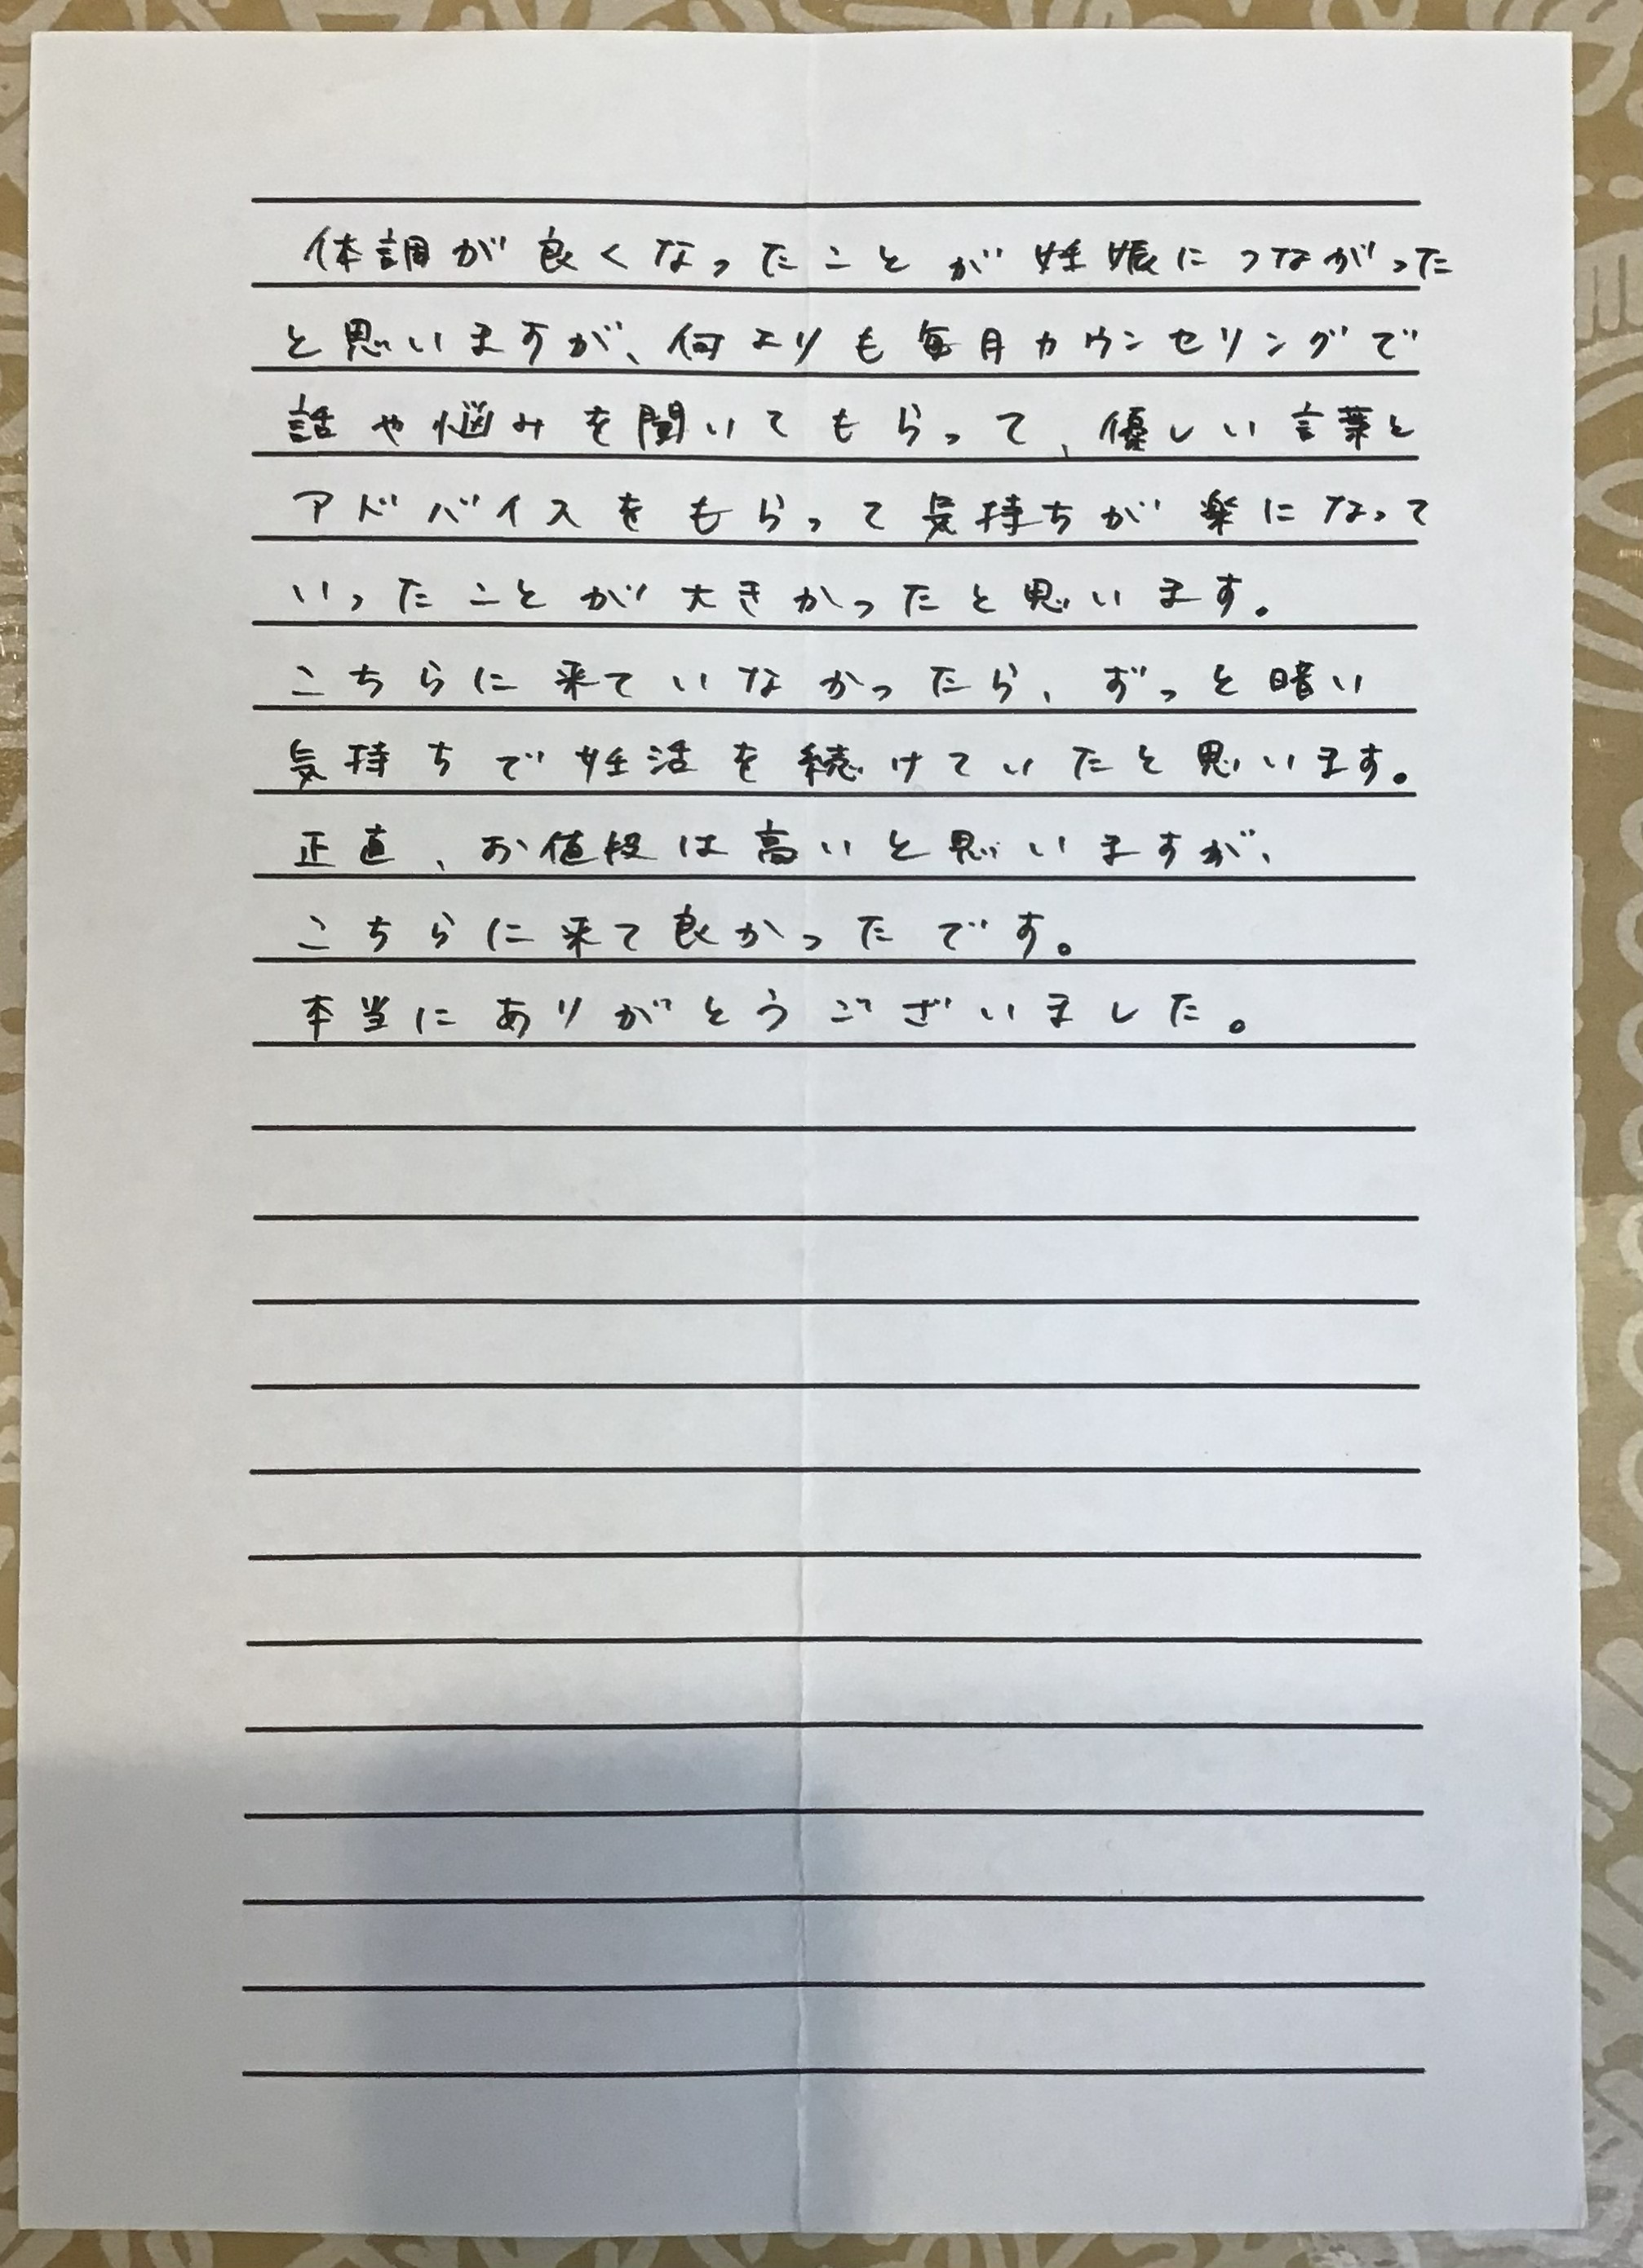 体調が良くなったことが妊娠につながった
と思いますが、何よりも毎月カウンセリングで
話や悩みを聞いてもらって、優しい言葉と
アドバイスをもらって気持ちが楽になって
いったことが大きかったと思います。
こちらに来ていなかったら、ずっと暗い
気持ちで妊活を続けていたと思います。
正直、お値段は高いと思いますが、
こちらに来て良かったです。
本当にありがとうございました。